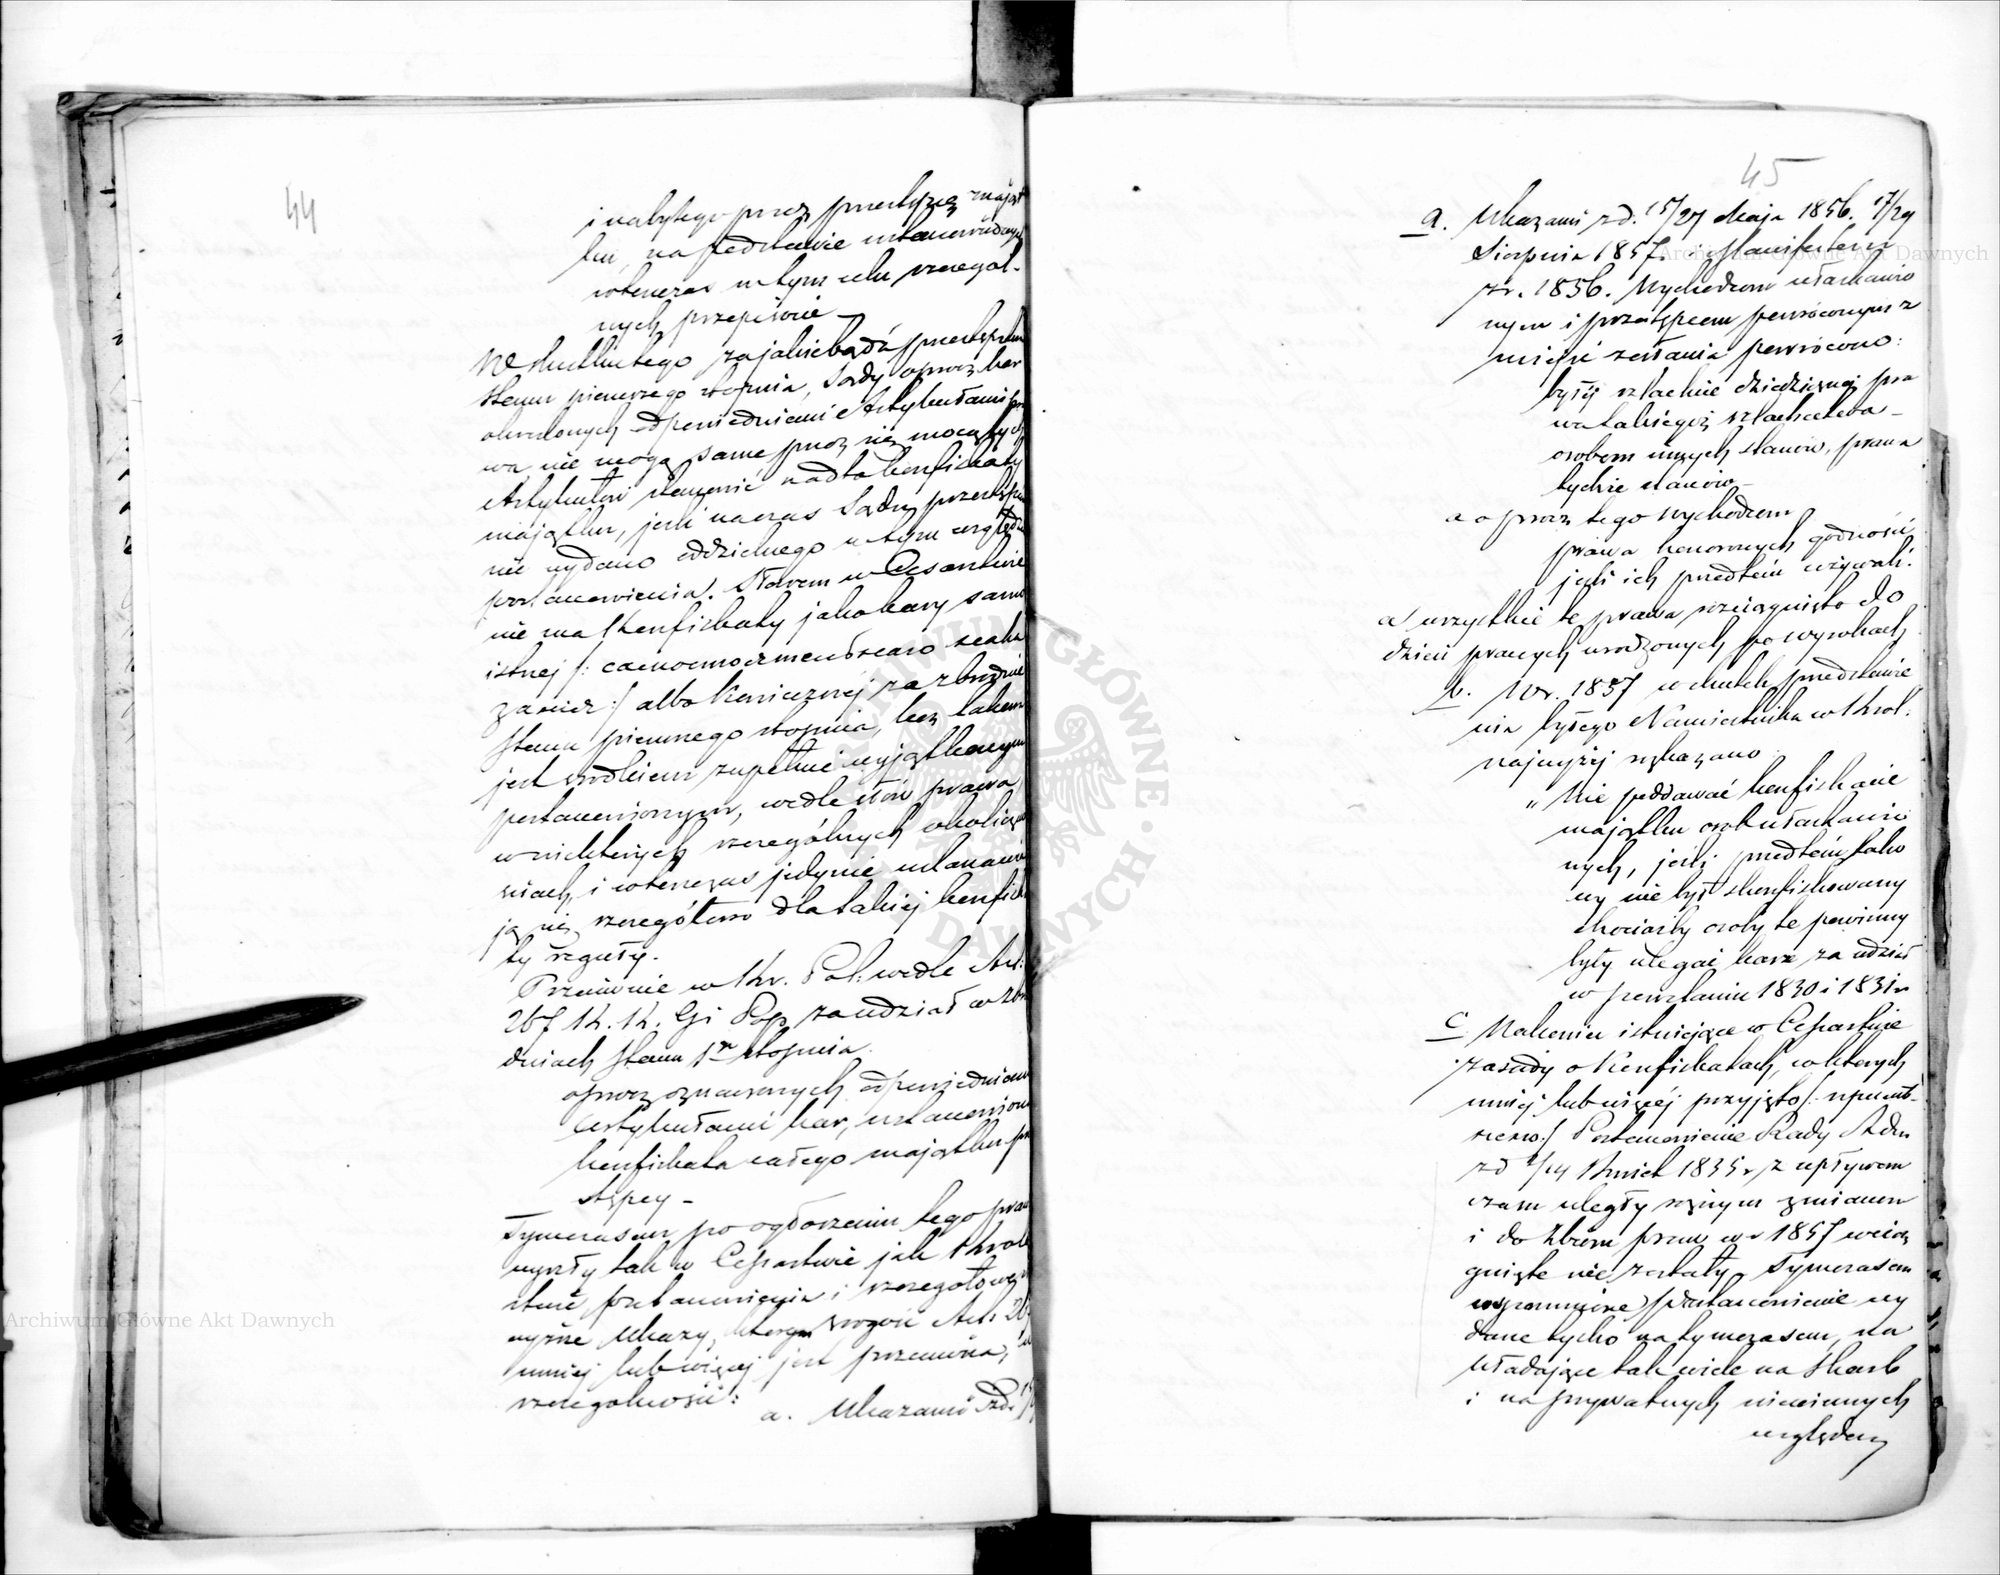 44
i nabytego przez przestępcę mająt
ku, na podstawie ustanowionych
wtenczas w tym celu szczegól-
nych przepisów —
Wskutku tego za jakiebądź przestępstwo
stanu pierwszego stopnia, Sądy oprócz kar
określonych odpowiedniemi Artykułami pra
wa nie mogą same przez się mocą tych
Artykułów stanowić nadto konfiskaty
majątku, jeśli na czas Sądu przestępcy
nie wydano oddzielnego w tym względzie
postanowienia. Słowem w Cesarstwie
nie ma konfiskaty jako kary samo
istnej /:
/ albo koniecznej za zbrodnie
stanu pierwszego stopnia, lecz takowa
jest środkiem zupełnie wyjątkowym
postanowionym, wedle słów prawa
w niektórych szczególnych okoliczno
ściach, i wtenczas jedynie ustanawia
ją się szczegółowo dla takiej konfiska
ty reguły.
Przeciwnie w Kr. Pol: wedle Art:
267 K. K. G i Pop za udział w zbro
dniach stanu 1go stopnia.
oprócz oznaczonych odpowiedniemi
Artykułami kar, ustanowiona
konfiskata całego majątku prze
stępcy —
Tymczasem po ogłoszeniu tego prawa
wyszły tak w Cesarstwie jak Króle
stwie postanowienia i szczegółowe
wyższe Ukazy, którym przepis Art. 26
mniej lub więcej jest przeciwny, w
szczególności:
a. Ukazami z d. 15/
45
a. Ukazami z d. 15/27 Maja 1856. 17/29
Sierpnia 1857. i Manifestem
z r. 1856. Wychodźcom ułaskawio
nym i przestępcom powróconym z
miejsc zesłania powrócono:
byłej szlachcie dziedzicznej pra
wa takiegoż szlachectwa —
osobom innych stanów, prawa
tychże stanów —
a oprócz tego wychodźcom
prawa honorowych godności
jeśli ich przedtem używali.
a wszystkie te prawa rozciągnięto do
dzieci prawych urodzonych po wyrokach
b. W r. 1857 w skutek przedstawie
nia byłego Namiestnika w Król:
najwyżej rozkazano
„Nie poddawać konfiskacie
majątku osób ułaskawio
nych, jeśli przedtem tako
wy nie był skonfiskowany
chociażby osoby te powinny
były ulegać karze za udział
w powstaniu 1830 i 1831 r.
c Nakoniec istniejące w Cesarstwie
zasady o konfiskatach, w których
mniej lub więcej przyjęto /:
/ Postanowienie Rady Adm
z d 2/14 Kwiet 1835 r. z upływem
czasu uległy różnym zmianom
i do zbioru praw w r 1857 wcią
gnięte nie zostały. Tymczasem
wspomnione postanowienie wy
dane tylko na tymczasem, na
kładające tak wiele na Skarb
i na prywatnych niewinnych
względem
Archiwum Główne Akt Dawnych
Archiwum Główne Akt Dawnych
ARCHIWUM GŁÓWNE AKT DAWNYCH